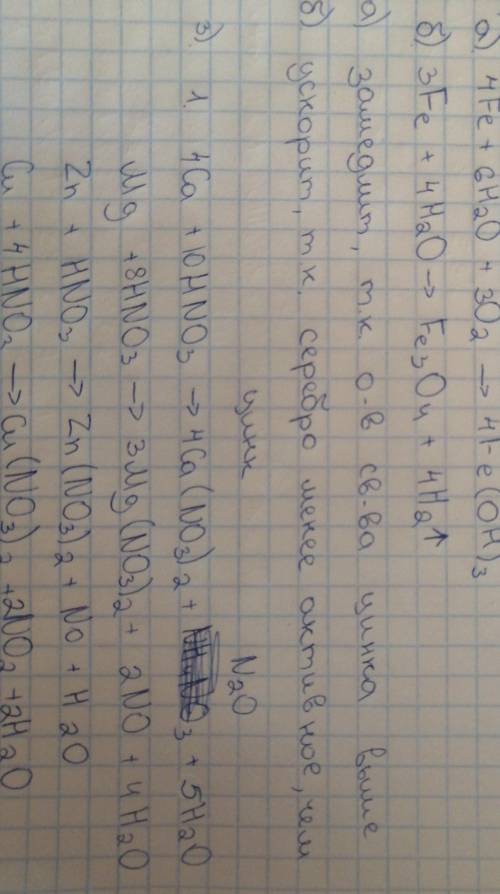 а) 4Fe + 6H2O + 3O2 → 4Fe(OH)3
б) 3Fe + 4H2O → Fe3O4 + 4H2↑
а) замедлит, т.к. о-в св-ва цинка выше
б) ускорит, т.к. серебро менее активное, чем
цинк
N2O
3) 1. 4Ca + 10HNO3 → 4Ca(NO3)2 + + 5H2O
Mg + 8HNO3 → 3Mg(NO3)2 + 2NO + 4H2O
Zn + HNO3 → Zn(NO3)2 + No + H2O
Cu + 4HNO3 → Cu(NO3)2 + 2NO2 + 2H2O